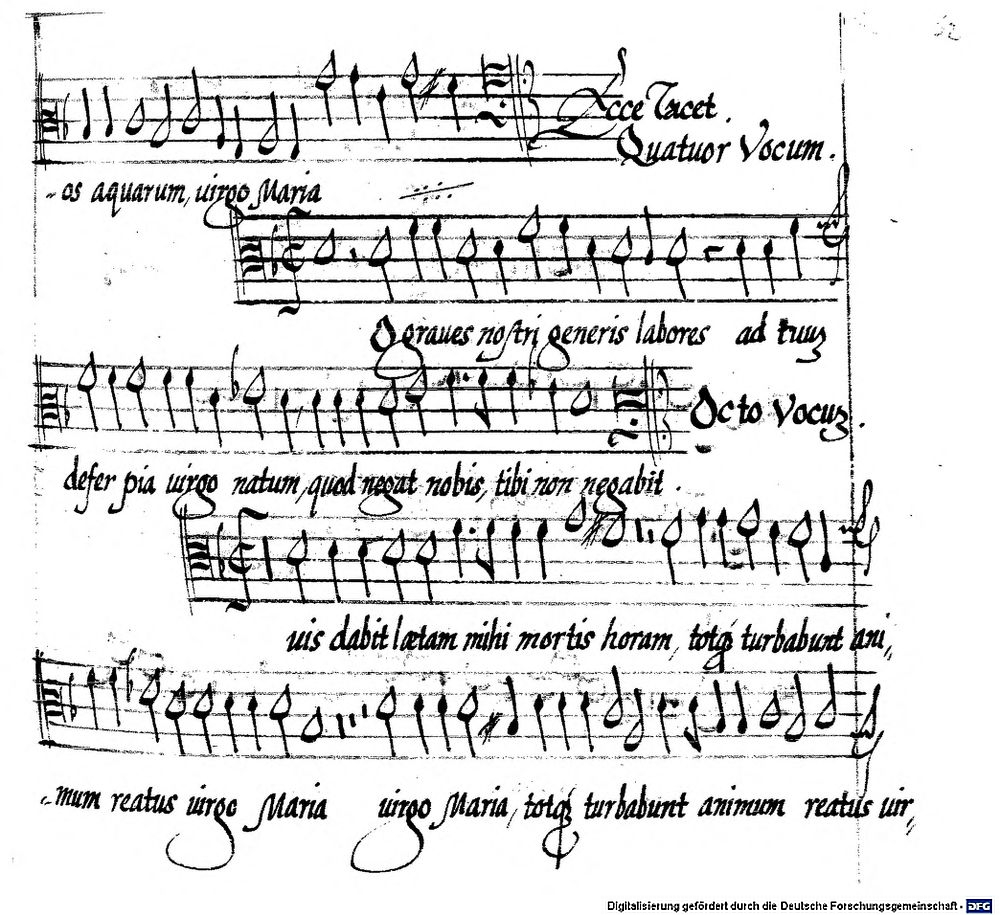 52
Ecce Tacet.
Quatuor Vocum.
os aquarum, uirgo Maria
O graues nostri generis labores ad tuuʒ
Octo Vocuʒ.
defer pia uirgo natum, quod negat nobis, tibi non negabit.
uis dabit lætam mihi mortis horam, totqʒ turbabunt ani,,
mum reatus uirgo Maria uirgo Maria, totqʒ turbabunt animum reatus uir,,
Digitalisierung gefördert durch die Deutsche Forschungsgemeinschaft - DFG